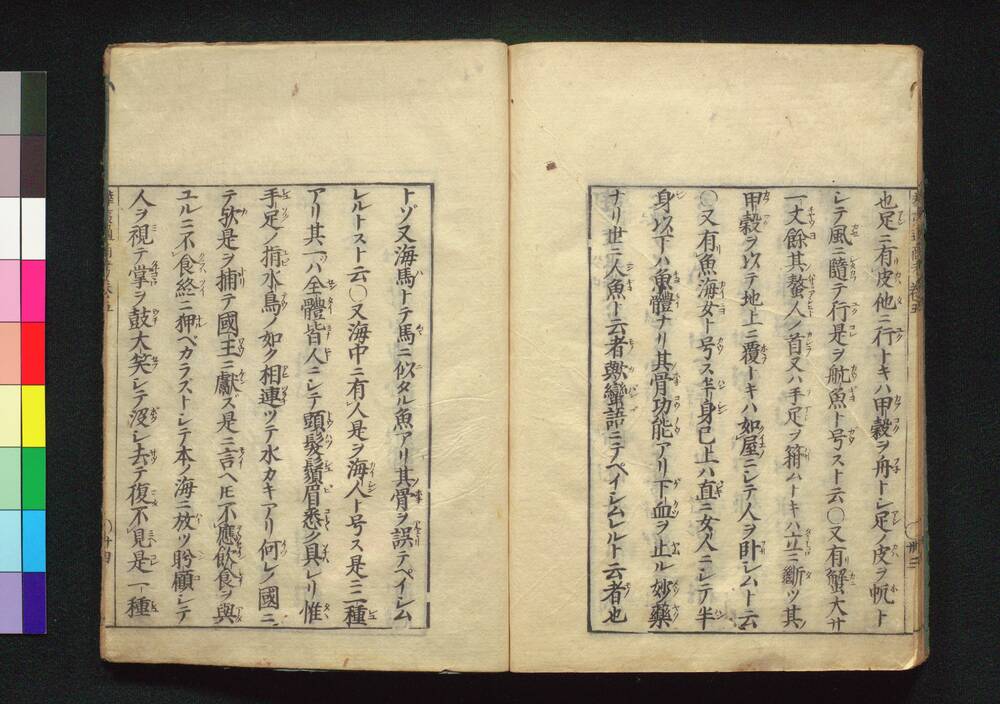 也足ニ有皮他ニ行トキハ甲穀ヲ舟トシ足ノ皮ヲ帆ト
シテ風ニ隨テ行是ヲ航魚ト号スト云〇又有蟹大サ
一丈餘其螯人ノ首又ハ手足ヲ箝ハトキハ立ニ斷ツ其
甲穀ヲ以テ地上ニ覆トキハ如屋ニシテ人ヲ卧シムト云
〇又有魚海女ト号ス半身已上ハ直ニ女人ニシテ半
身以下ハ魚體ナリ其骨功能アリ下血ヲ止ル妙藥
ナリ世ニ人魚ト云者歟蠻語ニテペイシムレルト云者也
トゾ又海馬トテ馬ニ似タル魚アリ其骨ヲ誤テペイシム
レルトスト云〇又海中ニ有人是ヲ海人ト号ス是ニ二種
アリ其一ハ全體皆人ニシテ頭髮鬚眉悉ク具レリ惟
手足ノ指水鳥ノ如ク相連ツテ水カキアリ何レノ國ニ
テ歟是ヲ捕テ國王ニ獻ズ是ニ言ヘ𪜈不應飲食ヲ與
ユルニ不食終ニ狎ベカラストシテ本ノ海ニ放ツ盻顧シテ
人ヲ視テ掌ヲ鼓大笑シテ沒シ去テ復不見是一種